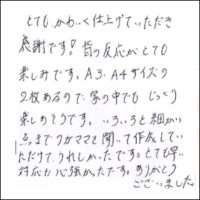 とてもかわいく仕上げていただき
感謝です!皆の反応がとても
楽しみです。A3、A4サイズの
2枚あるので家の中でもじっくり
楽しめそうです。いろいろと細かい
点までワガママを聞いて作成してい
ただけて、うれしかったです。とても早い
対応も心強かったです。ありがとう
ございました。